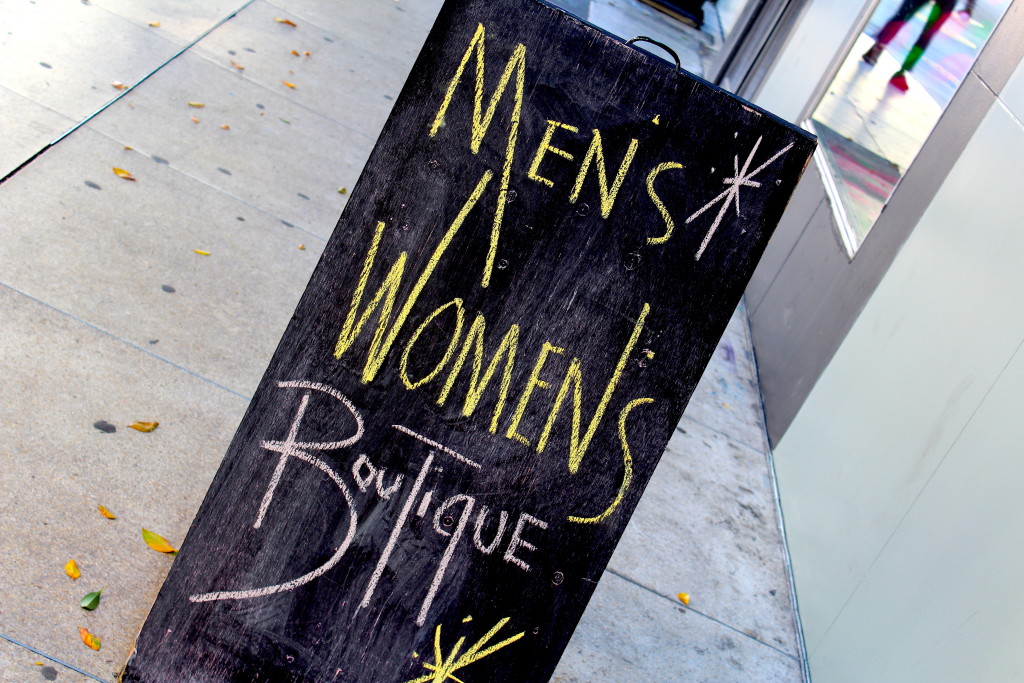 MEN'S
WOMEN'S
BOUTIQUE